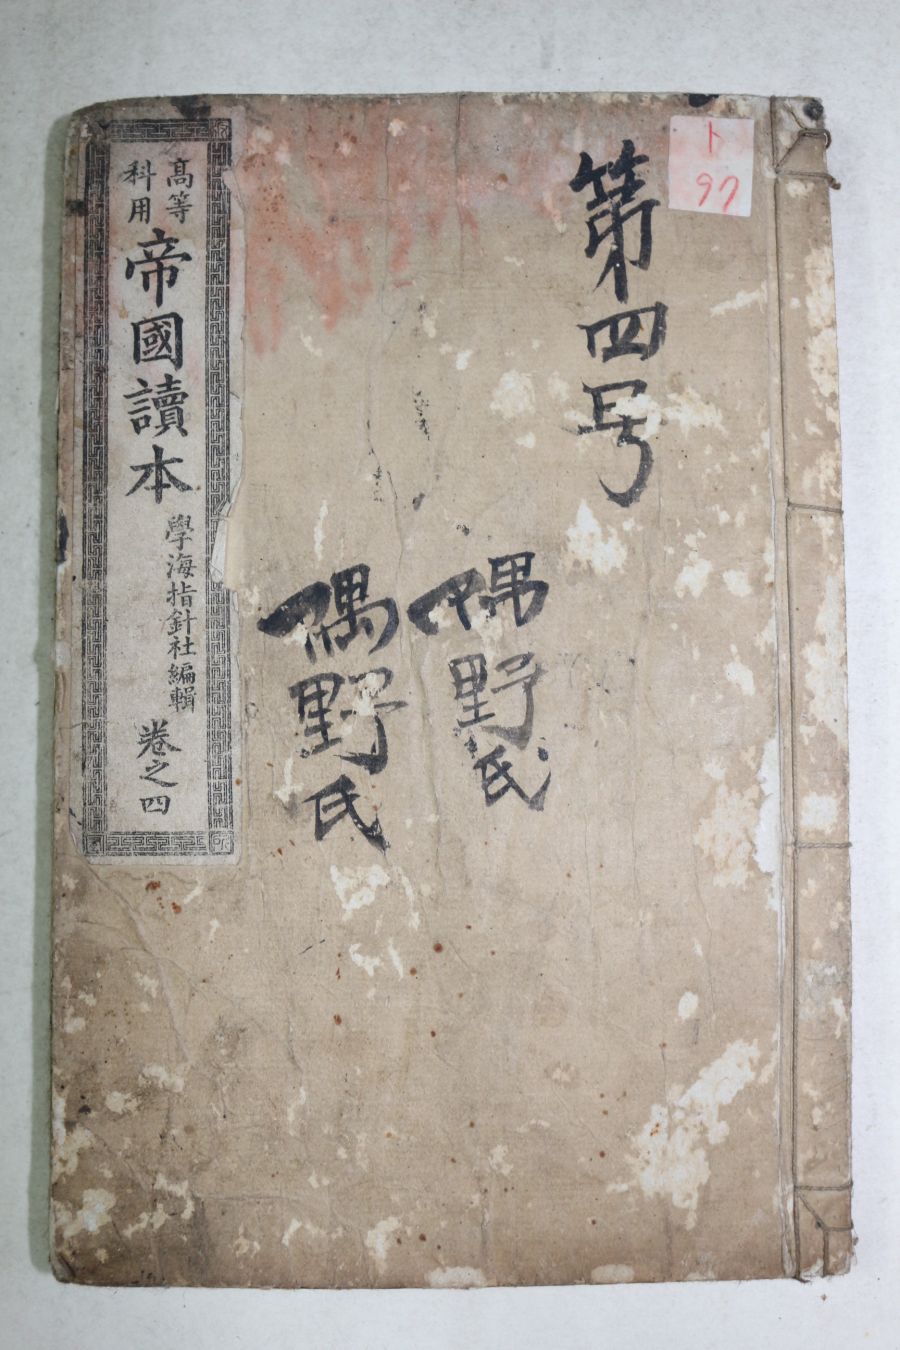 ト
97
第四号
偶野氏
偶野氏
高等
科用
帝國讀本
學海指針社編輯
卷之四